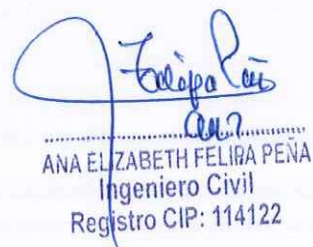 ANA ELIZABETH FELIPA PEÑA
Ingeniero Civil
Registro CIP: 114122